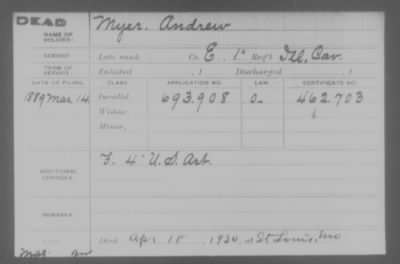 DEAD
NAME OF SOLDIER: Myer, Andrew
SERVICE: Late rank, Co. E, 1st Reg't Ill. Cav.
TERM OF SERVICE: Enlisted , 1 Discharged , 1
DATE OF FILING. CLASS. APPLICATION NO. LAW. CERTIFICATE NO.
1889 Mar 14. Invalid, 693.908 O- 462.703
Widow,
Minor,
ADDITIONAL SERVICES: F. 4" U.S. Art.
REMARKS:
Died Apr 18, 1930, at St Louis, Mo.